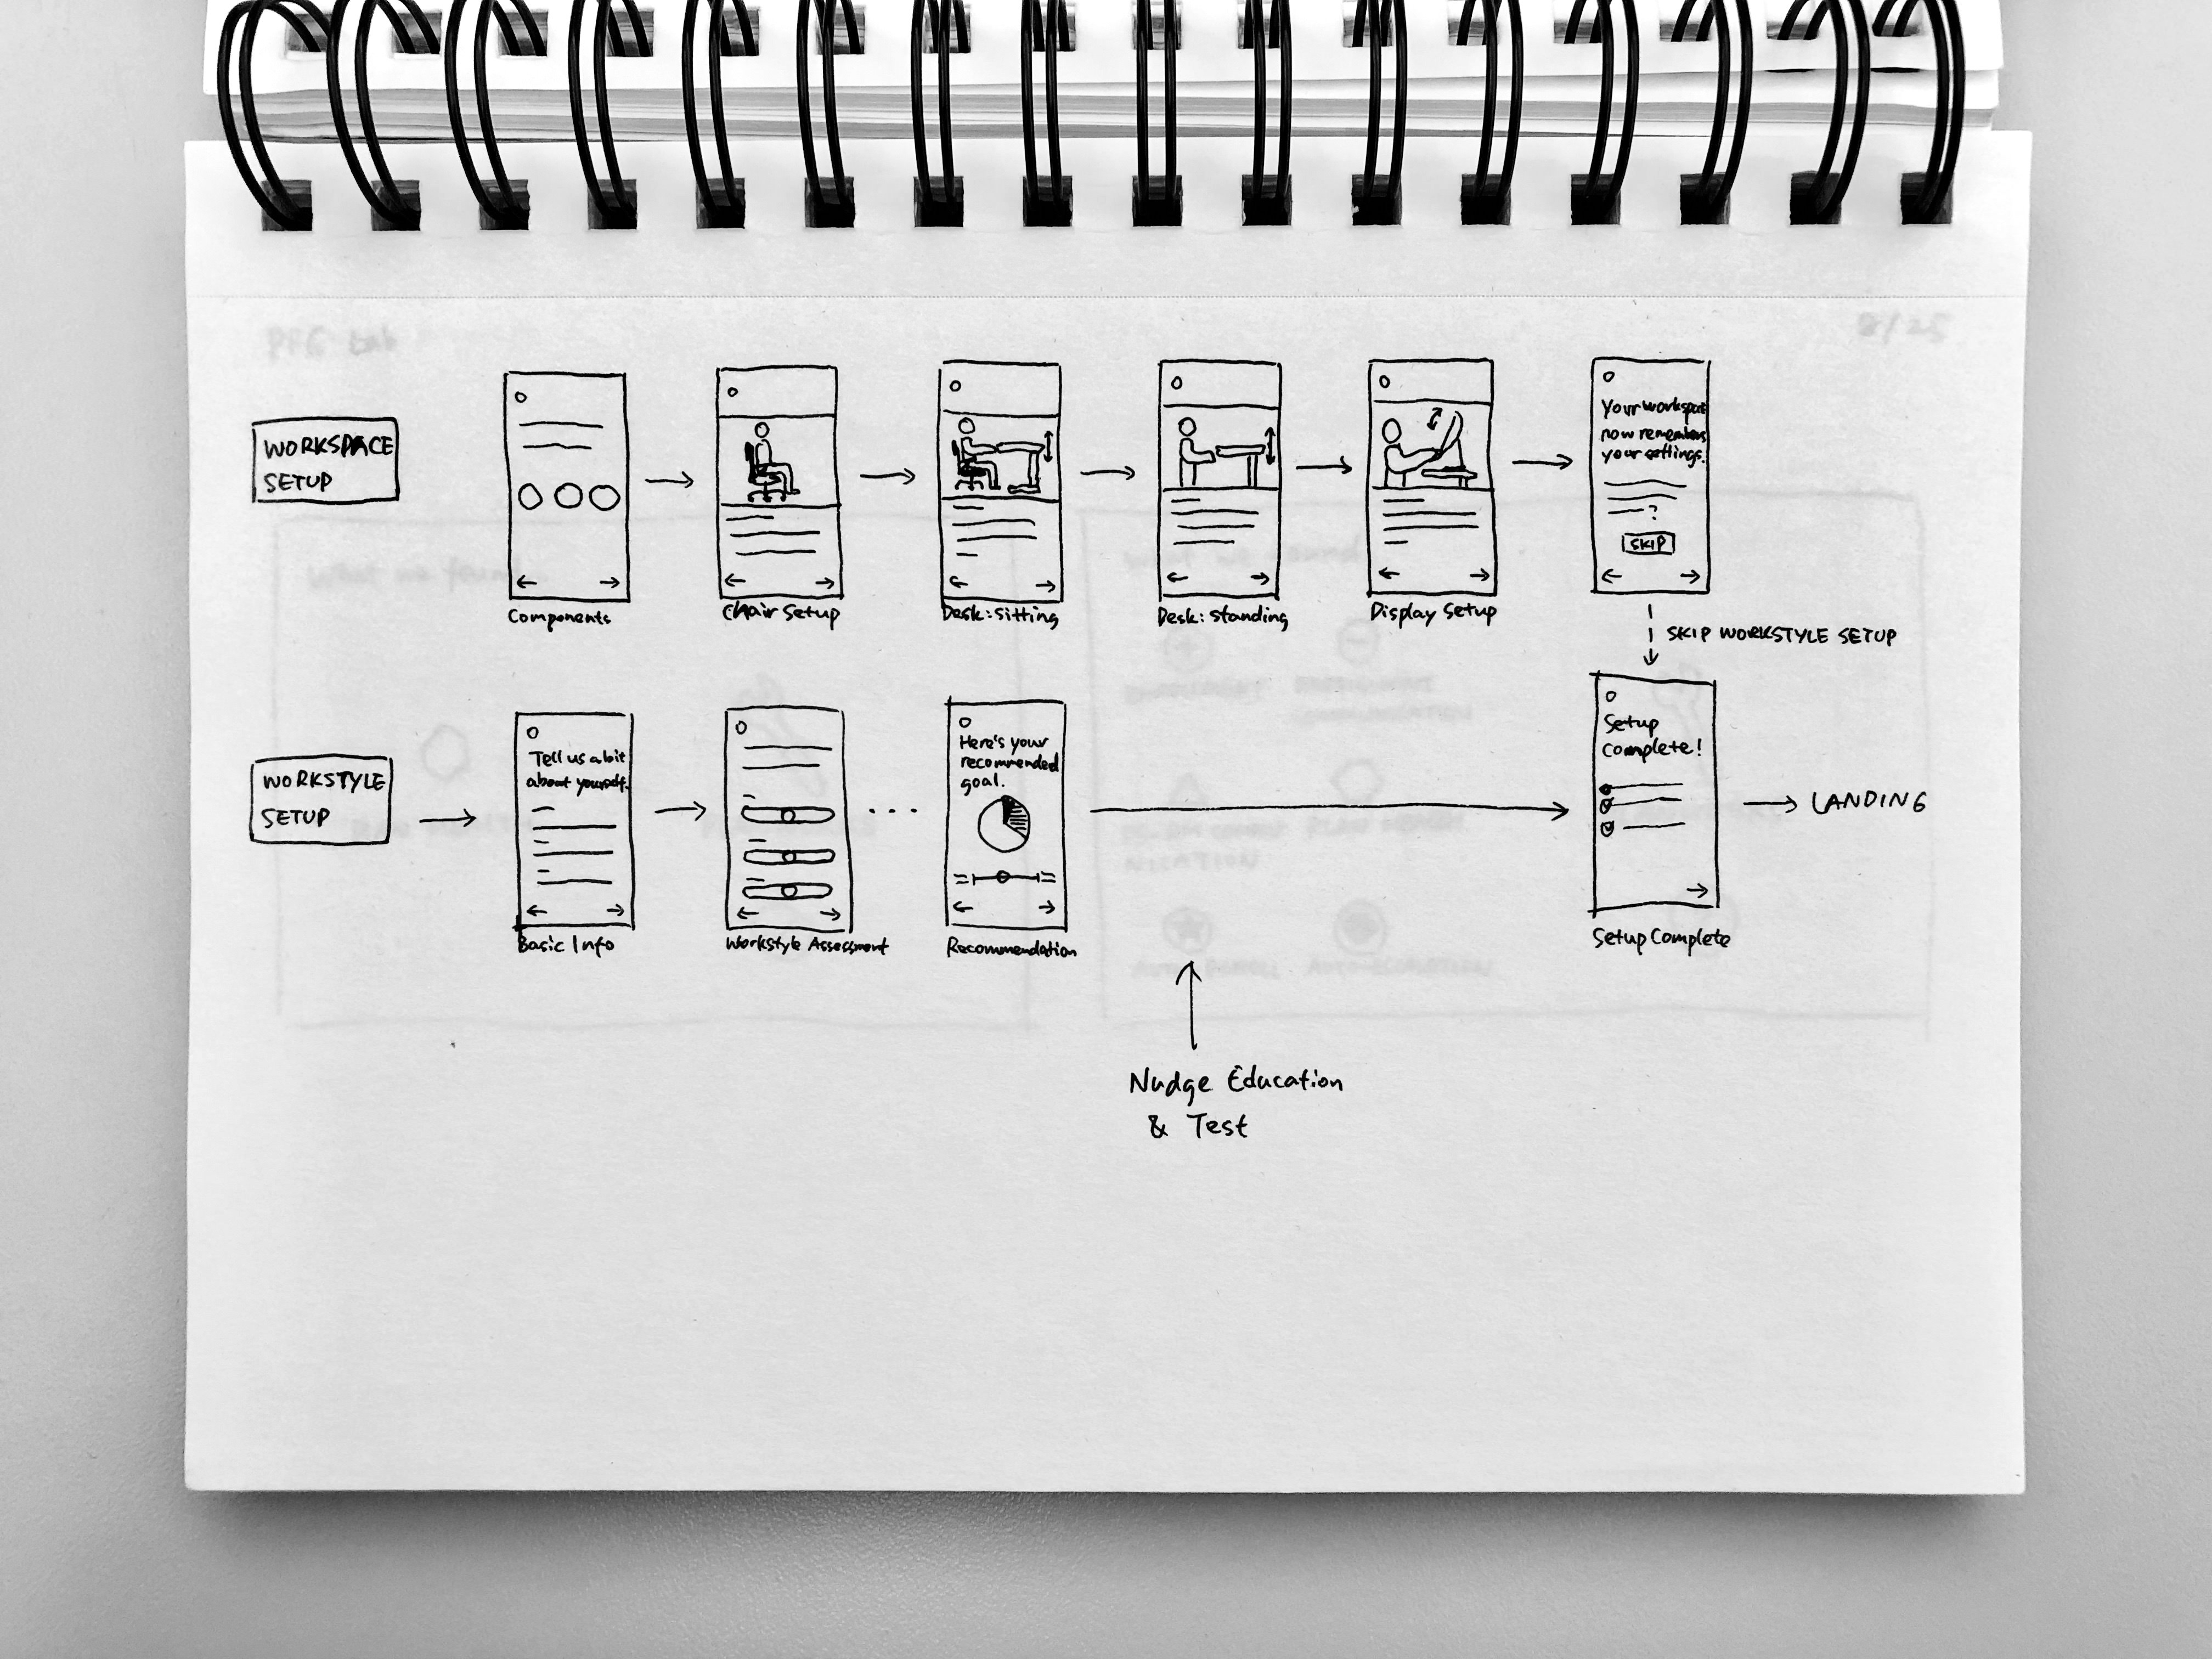 WORKSPACE
SETUP
Components
Chair Setup
Desk: Sitting
Desk: Standing
Display Setup
Your workspac
now remembers
your settings.
?
SKIP
SKIP WORKSTYLE SETUP
WORKSTYLE
SETUP
Tell us a bit
about yourself.
Basic Info
Workstyle Assessment
...
Here's your
recommended
goal.
Recommendation
Setup
Complete!
Setup Complete
LANDING
Nudge Education
& Test
PFG tak
8/25
What we found